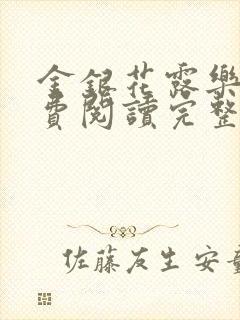 金銀花露樂
費閱讀完整
佐藤友生 安童